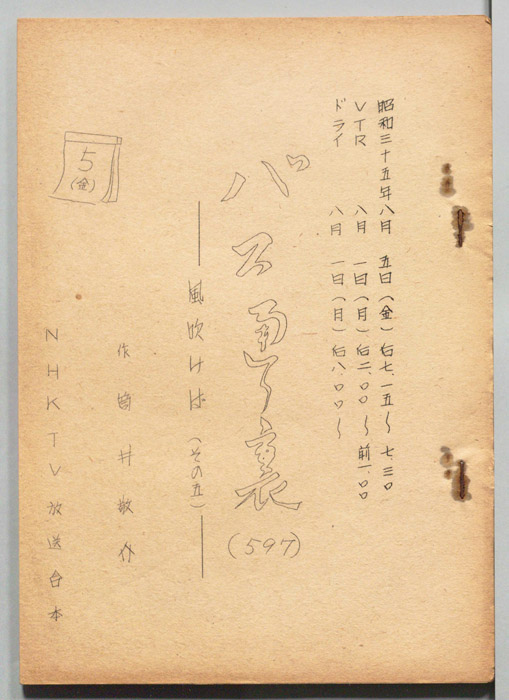 昭和三十五年八月 五日(金)后七.一五〜七.三〇
VTR 八月 一日(月)后二.〇〇〜前一.〇〇
ドライ 八月 一日(月)后八.〇〇〜
バス通り裏
(597)
風吹けば(その五)
作 筒井敬介
NHK TV 放送台本
5
(金)